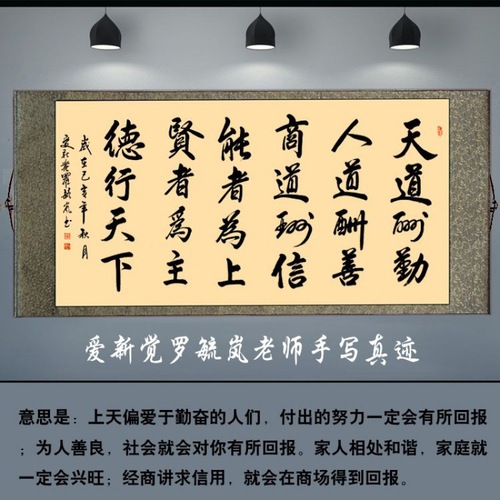 天道酬勤
人道酬善
商道酬信
能者為上
賢者為主
德行天下
歲在己亥年秋月
愛新覺羅毓嵐书
爱新觉罗毓岚老师手写真迹
意思是：上天偏爱于勤奋的人们，付出的努力一定会有所回报
；为人善良，社会就会对你有所回报。家人相处和谐，家庭就
一定会兴旺；经商讲求信用，就会在商场得到回报。